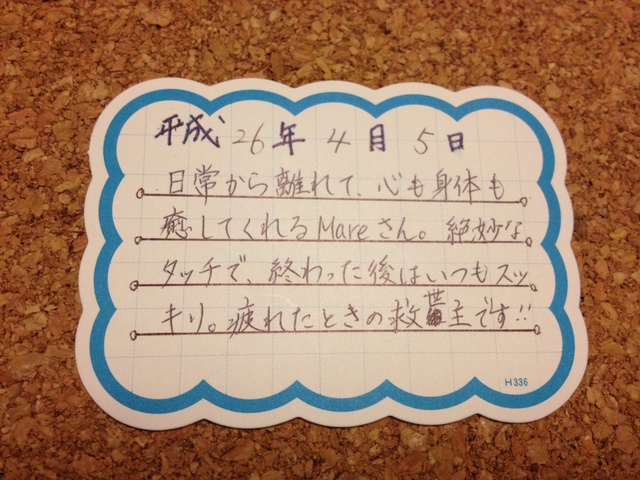 平成 26 年 4 月 5 日
日常から離れて、心も身体も
癒してくれるMareさん。絶妙な
タッチで、終わった後はいつもスッ
キリ。疲れたときの救世主です!!
H336